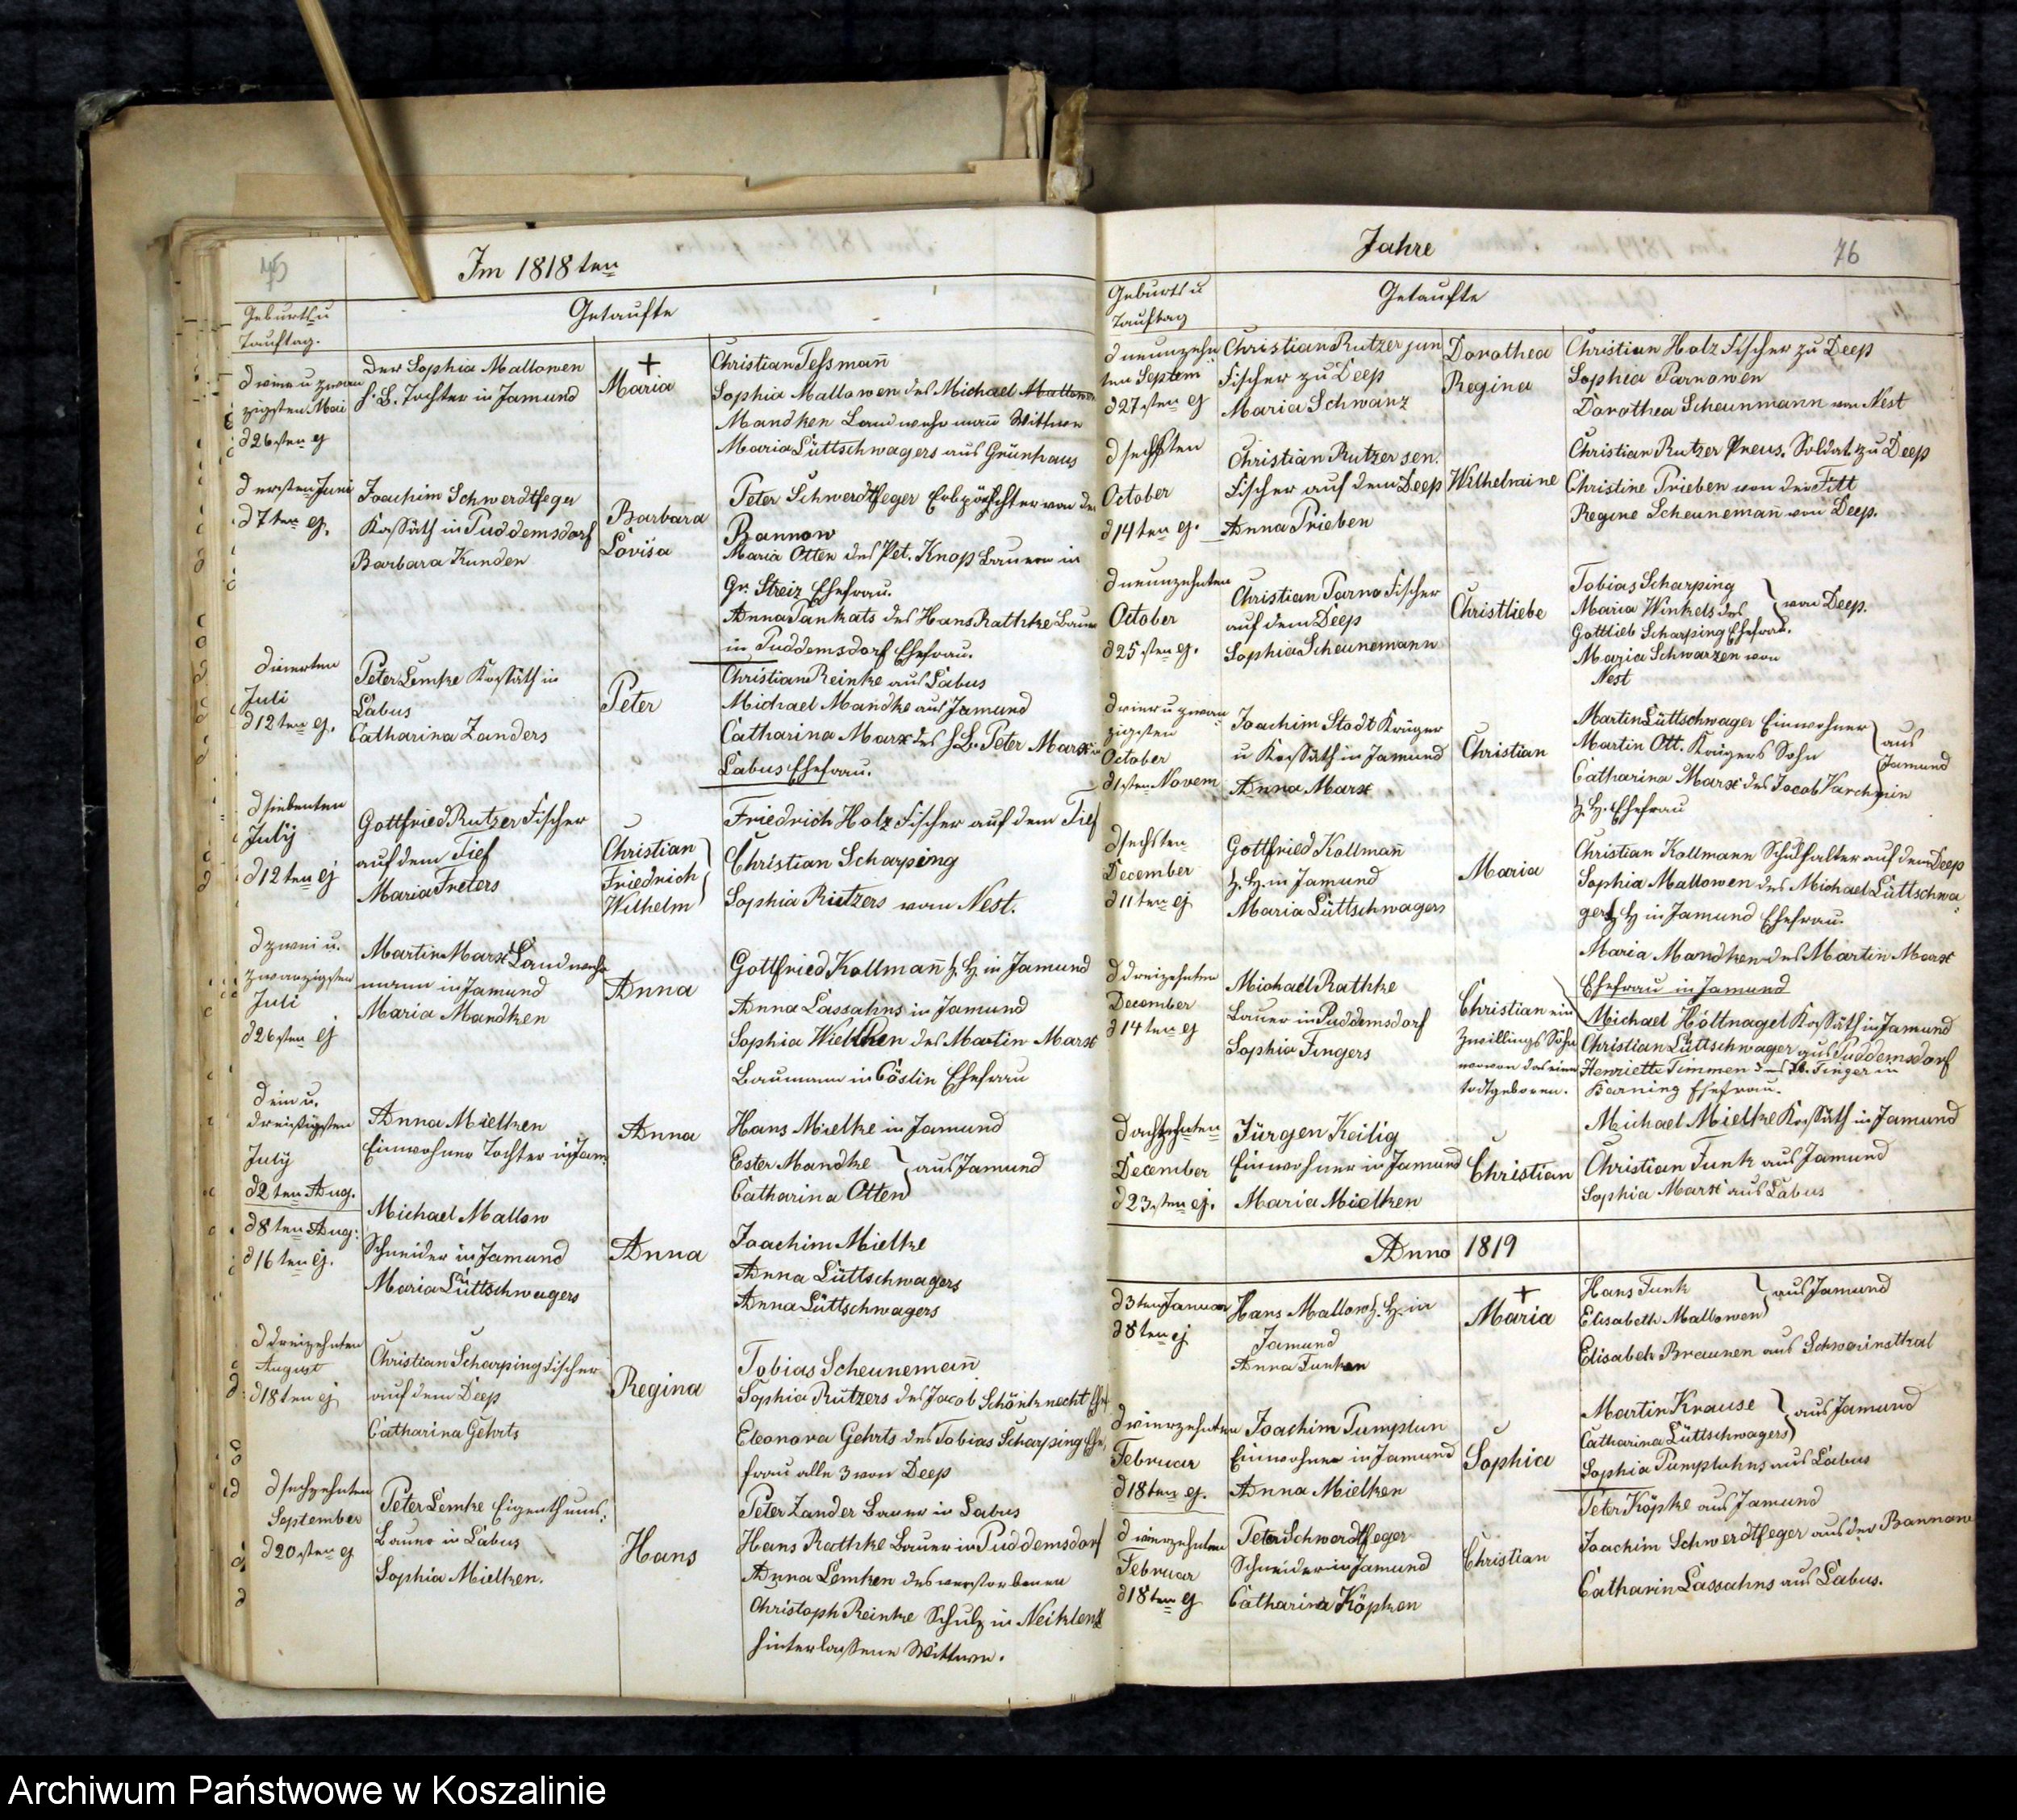 75
Im 1818ten
Geburts u
Tauftag.
Getaufte
d vier u zwan
zigsten Mai
d 26sten ej
Der Sophia Mallowen
h. B. Tochter in Jamund
+
Maria
Christian Teßman̄
Sophia Mallowen des Michael
Mandken Landwehrman̄ Wittwe
Maria Lüttschwagers aus Grünhaus
d ersten Juni
d 7ten ej.
Joachim Schwerdtfeger
Kossäth in Puddemsdorf
Barbara Kunden
Barbara
Lovisa
Peter Schwerdtfeger Erbpächter von der
Bannow
Maria Otten des Pet. Knop Bauern in
Gr. Streiz Ehefrau.
Anna Pankats des Hans Rathke Bauer
in Puddemsdorf Ehefrau.
d vierten
Juli
d 12ten ej.
Peter Lemke Kossäth in
Labus
Catharina Zanders
Peter
Christian Reinke aus Labus
Michael Mandke aus Jamund
Catharina Marx des h. B. Peter Marx in
Labus Ehefrau.
d siebenten
July
d 12ten ej
Gottfried Rutzer Fischer
auf dem Tief
Maria Freters
Christian
Friedrich
Wilhelm
Friedrich Holz Fischer auf dem Tief
Christian Scharping
Sophia Rutzers vom Nest.
d zwei u.
zwanzigsten
Juli
d 26sten ej
Martin Marx Landwehr
mann in Jamund
Maria Mandken
Anna
Gottfried Kollman̄ h. H. in Jamund
Anna Lassahns in Jamund
Sophia Wielken des Martin Marx
Baumann in Cöslin Ehefrau
d ein u.
dreißigsten
July
d 2ten Aug.
Anna Mielken
Einwohner Tochter in Jam.
Anna
Hans Mielke in Jamund
Ester Mandke
Catharina Otten
aus Jamund
d 8ten Aug:
d 16ten ej.
Michael Mallow
Schneider in Jamund
Maria Lüttschwagers
Anna
Joachim Mielke
Anna Lüttschwagers
Anna Lüttschwagers
d dreizehnten
August
d 18ten ej
Christian Scharping Fischer
auf dem Deep
Catharina Gehrts
Regina
Tobias Scheuneman̄
Sophia Rutzers des Jacob Schönknecht Ehe
Eleonora Gehrts des Tobias Scharping Ehe
frau alle 3 von Deep
d sechzehnten
September
d 20sten ej
Peter Lemke Eigenthums:
Bauer in Labus
Sophia Mielken.
Hans
Peter Zander Bauer in Labus
Hans Rathke Bauer in Puddemsdorf
Anna Lemken des verstorbenen
Christoph Reinke Schulz in Neiklenz
hinterlassene Wittwe.
Jahre
76
Geburts u
Tauftag
Getaufte
d neunzehn
ten Septem
d 27sten ej
Christian Rutzer jun
Fischer zu Deep
Maria Schwanz
Dorothea
Regina
Christian Holz Fischer zu Deep
Sophia Parnowen
Dorothea Scheunmann von Nest
d sechsten
October
d 14ten ej.
Christian Rutzer sen.
Fischer auf dem Deep
Anna Prieben
Wilhelmine
Christian Rutzer Preus. Soldat zu Deep
Christine Prieben von der Fitt
Regine Scheuneman̄ von Deep.
d neunzehnten
October
d 25sten ej.
Christian Parno Fischer
auf dem Deep
Sophia Scheunemann
Christliebe
Tobias Scharping
Maria Winkels des
Gottlieb Scharping Ehefrau.
von Deep.
Maria Schwarzen von
Nest
d vier u zwan
zigsten
October
d 1sten Novem
Joachim Stodt Krüger
u Kossäth in Jamund
Anna Marx
Christian
Martin Lüttschwager Einwohner
Martin Ott. Krügers Sohn
aus
Jamund
Catharina Marx des Jacob Varchmin
h. H. Ehefrau
d sechsten
December
d 11ten ej
Gottfried Kollman̄
h. H. in Jamund
Maria Lüttschwagers
Maria
Christian Kollmann Schulhalter auf dem Deep
Sophia Mallowen des Michael Lüttschwa
gers h H in Jamund Ehefrau.
Maria Mandken des Martin Marx
Ehefrau in Jamund
d dreizehnten
December
d 14ten ej
Michael Rathke
Bauer in Puddemsdorf
Sophia Fingers
Christian ein
Zwillings Sohn
wovon das eine
todtgeboren.
Michael Höltnagel Kossäth in Jamund
Christian Lüttschwager aus Puddemsdorf
Henriette Timmen des Finger in
Barning Ehefrau.
d achtzehnten
December
d 23sten ej.
Jürgen Keilig
Einwohner in Jamund
Maria Mielken
Christian
Michael Mielke Kossäth in Jamund
Christian Funk aus Jamund
Sophia Marx aus Labus
Anno 1819
d 3ten Januar
d 8ten ej
Hans Mallow h. H. in
Jamund
Anna Funken
+
Maria
Hans Funk
Elisabeth Mallowen
aus Jamund
Elisabeth Braunen aus Schwerinsthal
d vierzehnten
Februar
d 18ten ej.
Joachim Pumplun
Einwohner in Jamund
Anna Mielken
Sophia
Martin Krause
Catharina Lüttschwagers
aus Jamund
Sophia Pumpluhns aus Labus
d vierzehnten
Februar
d 18ten ej
Peter Schwerdtfeger
Schneider in Jamund
Catharina Köpken
Christian
Peter Köpke aus Jamund
Joachim Schwerdtfeger aus der Bannow
Catharin Lassahns aus Labus.
Archiwum Państwowe w Koszalinie